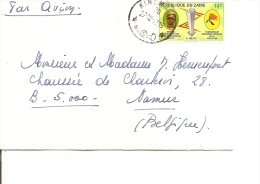 Par Avion
REPUBLIQUE DU ZAIRE
Monsieur et Madame J. Hennenfont
Chaussée de Charleroi, 28.
B - 5.000 - Namur
(Belgique)